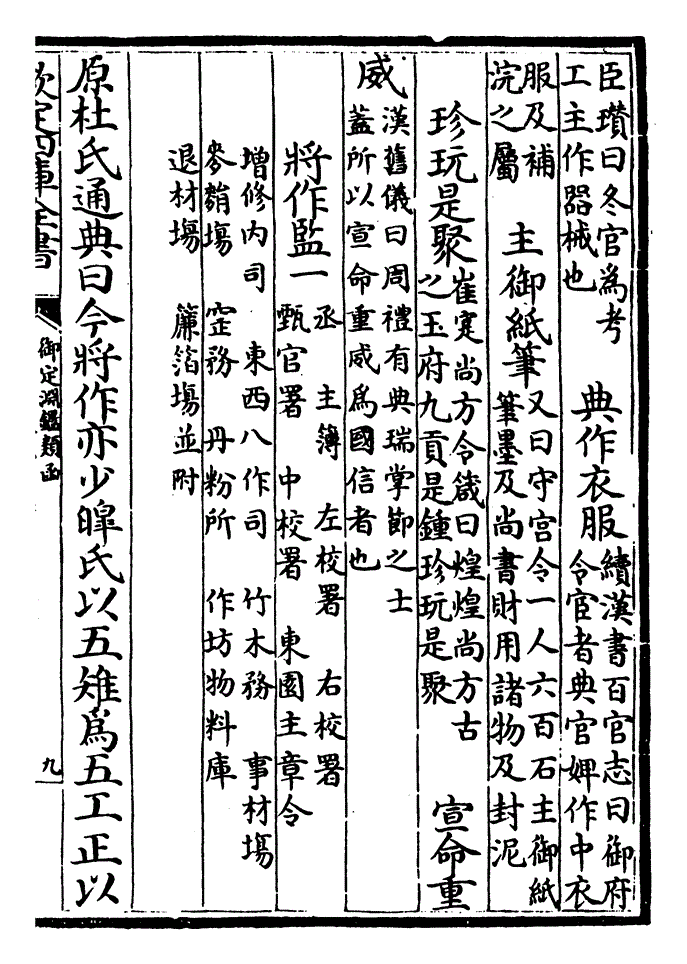 臣瓉曰冬官為考
工主作器械也
典作衣服
續漢書百官志曰御府
令宦者典官婢作中衣
服及補
浣之屬
主御紙筆
又曰守宫令一人六百石主御紙
筆墨及尚書財用諸物及封泥
珍玩是聚
崔寔尚方令箴曰煌煌尚方古
之玉府九貢是鍾珍玩是聚
宣命重
威
漢舊儀曰周禮有典瑞掌節之士
蓋所以宣命重威為國信者也
將作監一
丞 主簿 左校署 右校署
甄官署 中校署 東園主章令
增修内司 東西八作司 竹木務 事材塲
麥䴬塲 窑務 丹粉所 作坊物料庫
退材塲 簾箔塲並附
原杜氏通典曰今將作亦少暤氏以五雉為五工正以
欽定四庫全書
御定淵鑑類函
九